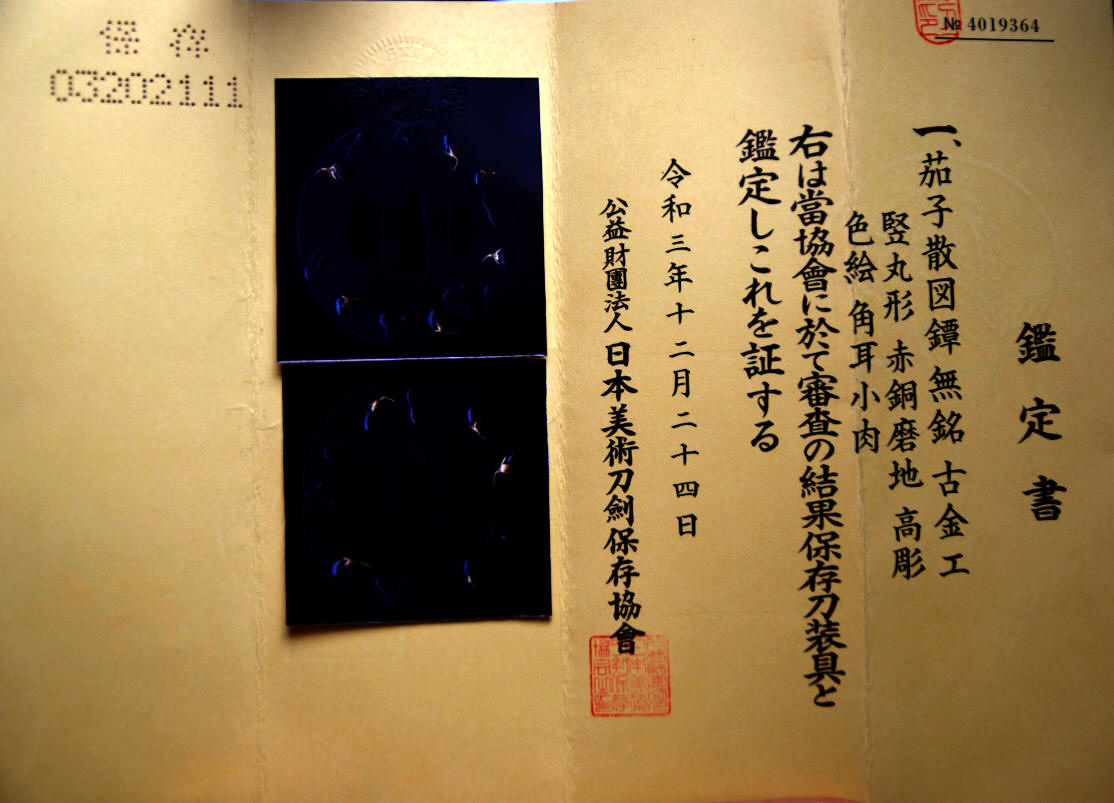 № 4019364
鑑定書
一、茄子散図鐔 無銘 古金工
竪丸形 赤銅磨地 高彫
色絵 角耳小肉
右は當協會に於て審査の結果保存刀装具と
鑑定しこれを証する
令和三年十二月二十四日
公益財團法人 日本美術刀劍保存協會
保存
03202111